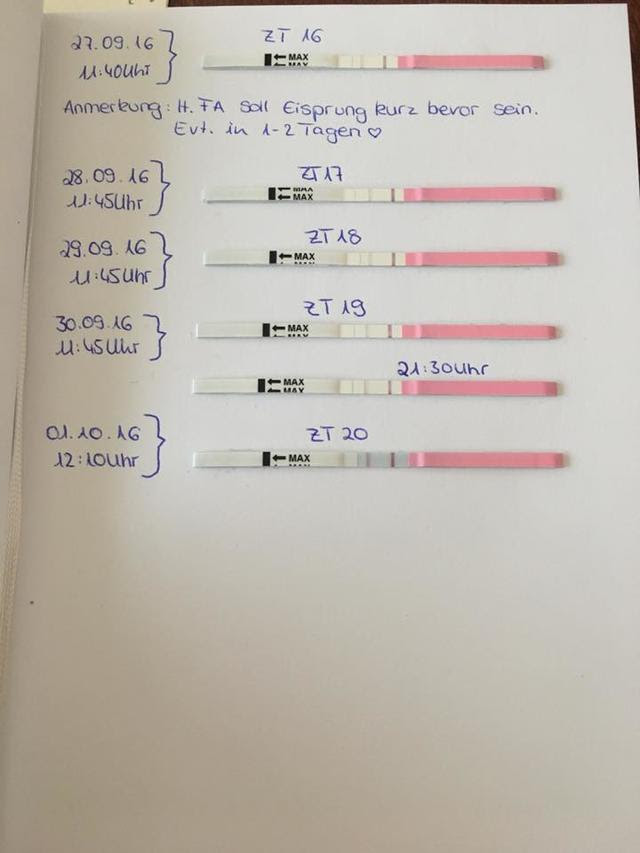 27.09.16 ZT 16
11:40Uhr
MAX
MAX
Anmerkung: H. FA soll Eisprung kurz bevor sein.
Evt. in 1-2 Tagen ♡
28.09.16 ZT 17
11:45Uhr
MAX
MAX
29.09.16 ZT 18
11:45Uhr
MAX
30.09.16 ZT 19
11:45Uhr
MAX
MAX
21:30Uhr
MAX
MAX
01.10.16 ZT 20
12:10Uhr
MAX
MAX